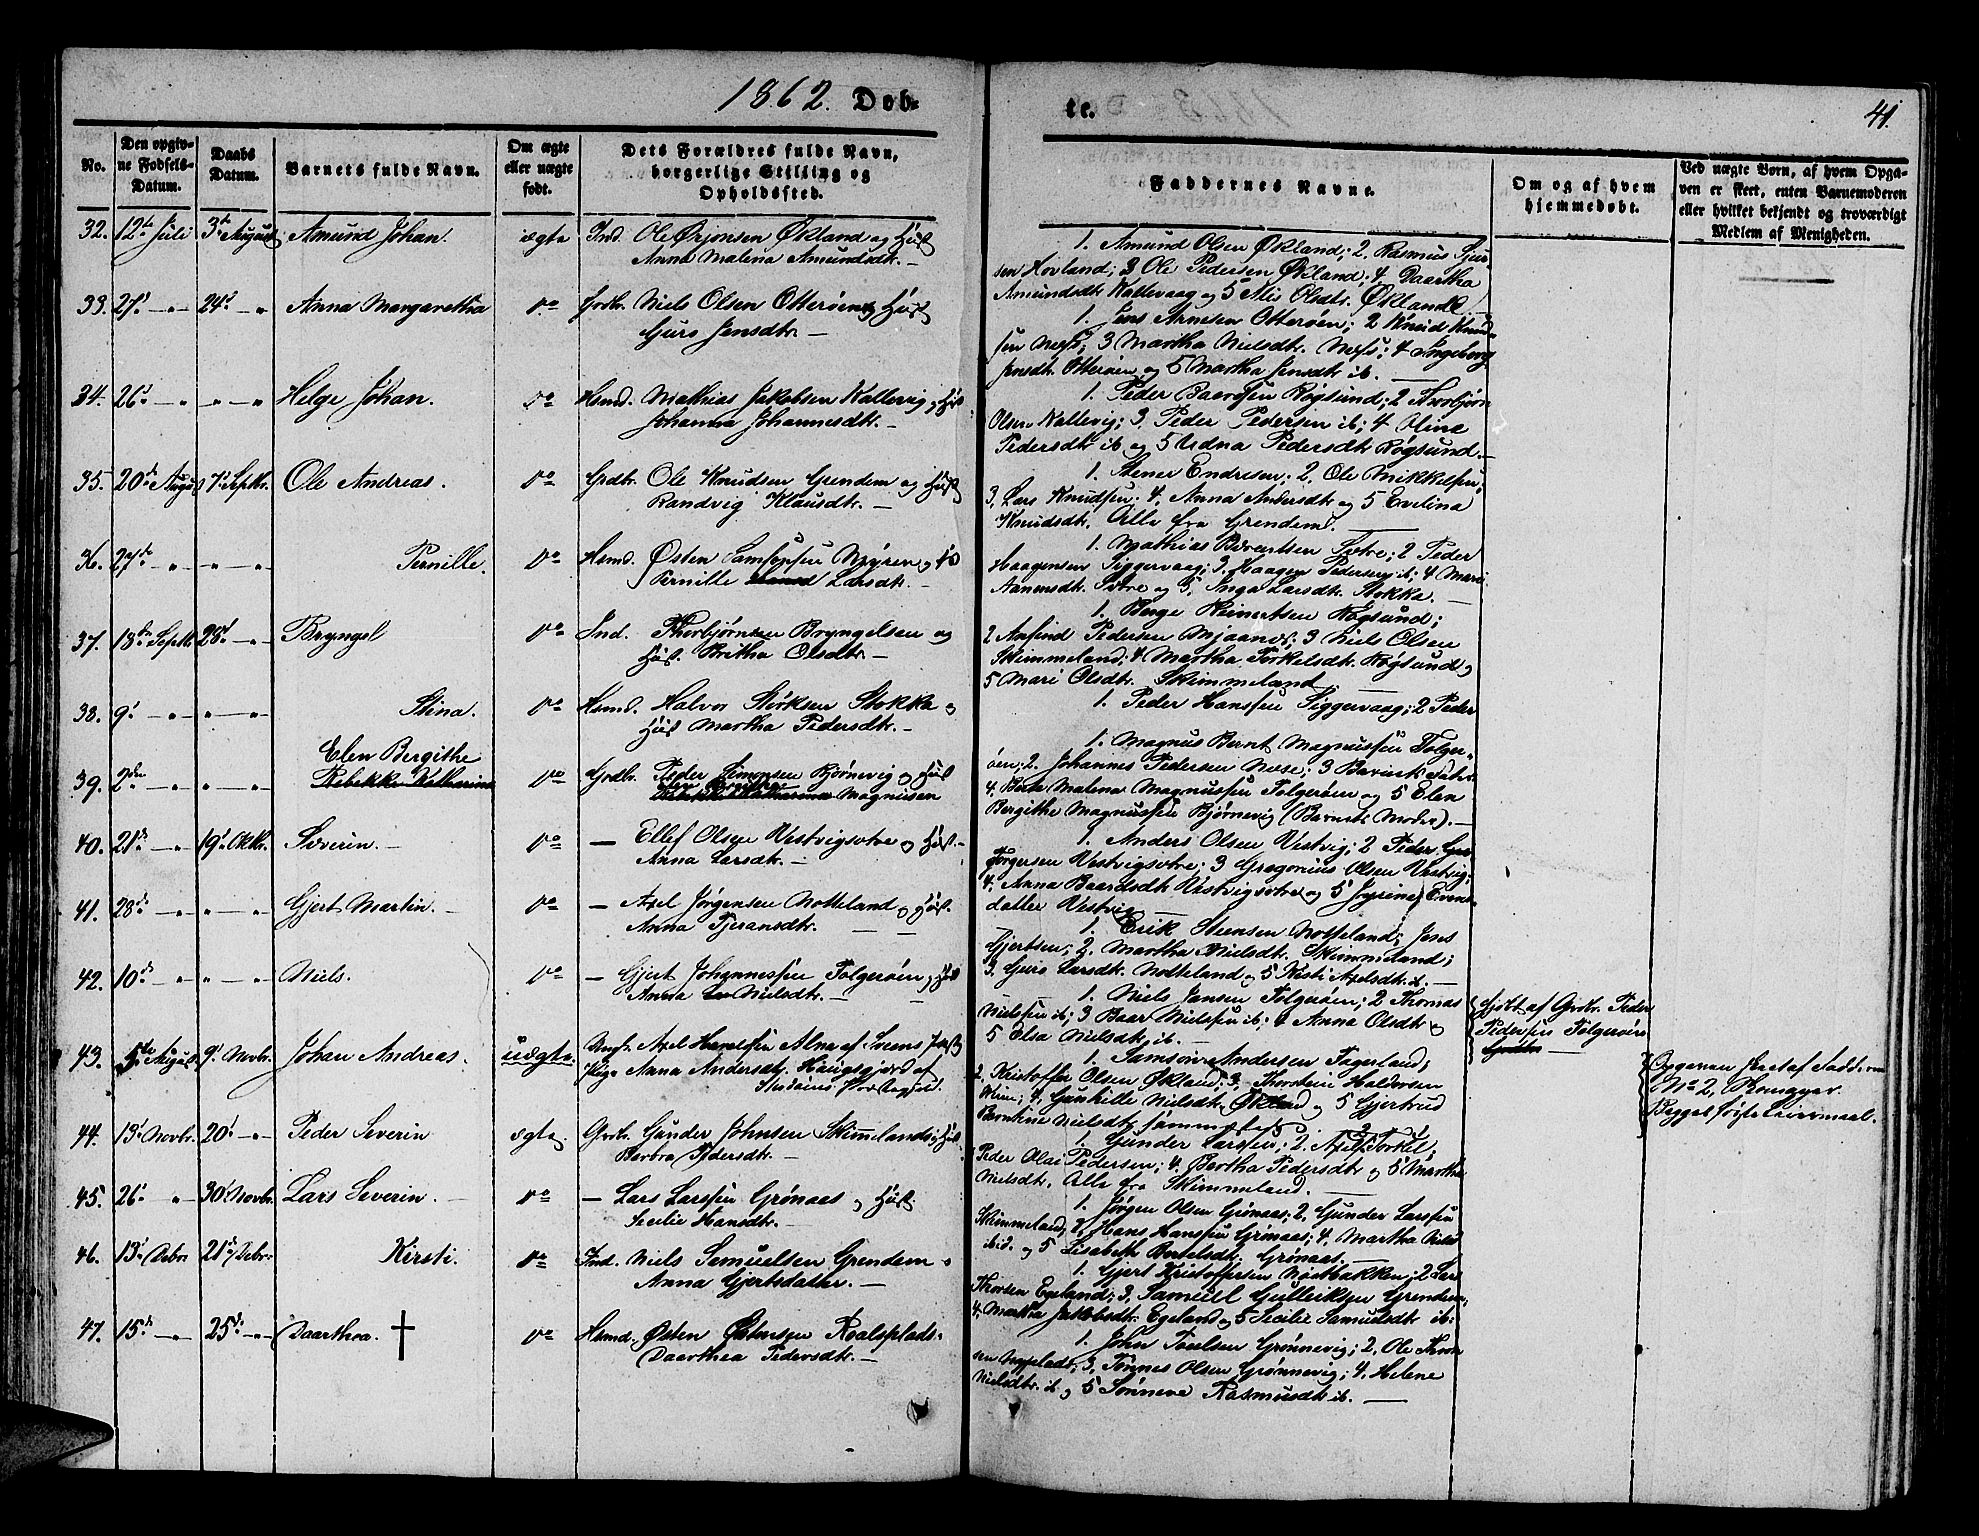 1862. Døb-
te.
41.
No.
Den opgiv-
ne Fødsels-
Datum.
Daabs
Datum.
Barnets fulde Navn.
Om ægte
eller uægte
født.
Dets Forældres fulde Navn,
borgerlige Stilling og
Opholdssted.
Faddernes Navne.
Om og af hvem
hjemmedøbt.
Ved uægte Børn, af hvem Opga-
ven er skeet, enten Barnemoderen
eller hvilket bekjendt og troværdigt
Medlem af Menigheden.
32. 12te Juli 3die August Amund Johan. ægte Ind. Ole Ørjansen Økland og Hust
Anna Malena Amundsdtr. —
1. Amund Olsen Økland; 2. Rasmus Sjur-
sen Hovland; 3 Ole Pedersen Økland; 4 Daartha
Amundsdtr Kallevaag og 5 Olsdtr. Økland
33. 27' — " 24d — " Anna Margaretha do Niels Olsen Otterøen og Hust
Guro Jensdtr. —
1. Jens Arnesen Otterøen; 2 Knud Knud-
sen Næss; 3 Martha Nielsdtr. Næss; 4 Ingeborg
Jensdtr. Otterøen og 5 Martha Jensdtr ib. —
34. 26' — " " — " Helge Johan. do Hsmd. Mathias Jakobsen Kallevig og Hust
Johanna Johannesdtr. —
1. Peder Baardsen Røgsund; 2 Thorbjørn
Olsen Kallevig; 3. Peder Pedersen ib; 4 Oline
Pedersdtr ib og 5 Udna Pedersdtr Røgsund. —
35. 20de August 7' Septbr. Ole Andreas. do Grdbr. Ole Knudsen Grendem og Hust
Randvig Klausdtr. —
1. Stener Endresen; 2. Ole Mikkelsen;
3. Lars Knudsen; 4. Anna Andersdtr og 5 Evelina
Knudsdtr. Alle fra Grendem. —
36. 27de " — " — " Pernille. do Hsmd. Østen Samsonsen Myren og H
Pernille Larsdtr. —
1. Mathias Berentsen Sætre; 2 Peder
Haagensen Siggervaag; 3. Haagen Pedersen ib; 4 Mari
Aanensdtr. Sætre og 5. Inga Larsdtr. Stokka. —
37. 18de Septbr. 28d — " Bryngel do Ind. Thorbjørnsen Bryngelsen og
Hust. Britha Olsdtr. —
1. Børge Reinertsen Røgsund;
2 Aasind Pedersen Mjaanæs; 3 Niels Olsen
Skimmeland; 4 Martha Torkelsdtr. Røgsund og
5 Mari Olsdtr. Skimmeland
38. 9' — " " — " Stina. do Hsmd. Halvor Størksen Stokka og
Hust Martha Pedersdtr. —
1. Peder Hanssen Siggervaag; 2 Peder
39. 2den — " " — " Elen Bergithe
Rebekke Katharina do Grdbr. Peder Simonsen Bjørnevig og Hust
Elen Bergithe
Rebekke Katharina Magnusen
1. Magnus Bernt Magnussen Folger-
øen; 2. Johannes Pedersen Næse; 3
4. Berte Malena Magnussen Folgerøen og 5 Elen
Bergithe Magnussen Bjørnevig (Barnets Moder). —
40. 21de — " 19' Oktbr. Severin. — do — Ellef Olsen Vestvigsøtre og Hust. —
Anna Larsdtr. —
1. Anders Olsen Vestvig; 2 Peder
Torgersen Vestvigsøtre; 3 Gregorius Olsen Vestvig;
4. Anna Baardsdtr Vestvigsøtre og 5 Jyrine Evens-
datter Vestvig —
41. 28de — " " — " Gjert Martin. — do — Axel Jørgensen Notteland og Hust.
Anna Tjeransdtr. —
1. Erik Steensen Notteland;
Gjertsen; 2. Martha Nielsdtr. Skimmeland;
3. Guro Larsdtr. Notteland og 5 Kisti Axelsdtr. ib. —
42. 10de — " " — " Niels. do — Gjert Johannessen Folgerøen og Hust
Anna Nielsdtr. —
1. Niels Jansen Folgerøen; 2 Thomas
Nielsen ib; 3 Baar Nielsen ib; 4 Anna Olsdtr og
5 Elsa Nielsdtr. ib. —
Hjdbt. af Grdbr. Peder
Pedersen Folgerøen
43. 5te August 9' Novbr. Johan Andreas. uægte. Ungk. Axel Haraldsen Alna af
Pige Anna Andersdtr. Haugsgjerd af
1. Samson Andersen Fogerland;
2. Kristoffer Olsen Økland; 3. Thorstein Haldorsen
4. Gunhille Nielsdtr. Økland og 5 Gjertrud
Berntine Nielsdtr
Opgaven
No 2,
Begges første Leiermaal.
44. 13' Novbr. 20' — " Peder Severin ægte. Grdbr. Gunder Johnsen Skimeland og Hust.
Barbra Pedersdtr. —
1. Gunder Larssen; 2. Axel Torkel;
Peder Olai Pedersen; 4. Bertha Pedersdtr og 5 Martha
Nielsdtr. Alle fra Skimmeland. —
45. 26' " 30' Novbr. Lars Severin. — do — Lars Larssen Grønaas og Hust
Secilie Hansdtr. —
1. Jørgen Olsen Grønaas; 2. Gunder Larssen
Skimmeland; Hans Hanssen Grønaas; 4. Martha Niels
ibid. og 5 Lisabeth Bertelsdtr. Grønaas. —
46. 13' Debr. 21de Debr. Kirsti. do Ind. Niels Samuelsen Grendem og
Anna Gjertsdatter. —
1. Gjert Kristoffersen Nøstbakken; 2 Lars
Thorsen Egeland; 3. Samuel Gulleiksen Grendem;
4. Martha Jakobsdtr. Egeland og 5 Secilie Samuelsdtr ib:
47. 15de — " 25de — " Daarthea. † do Hsmd. Østen Østensen Roalsplads.
Daarthea Pedersdtr. —
1. John Toulsen Grønnevig; 2. Ole Thor
sen 3. Tønnes Olsen Grønnevig; 4. Helene
Nielsdtr. ib og 5 Sønneve Rasmusdtr ib. —